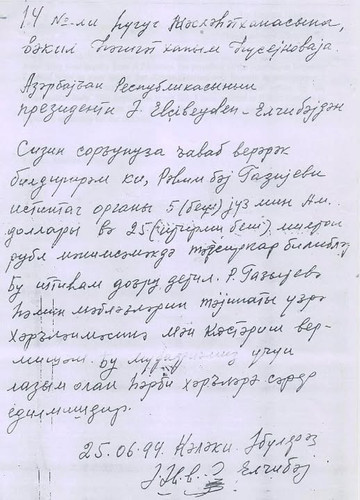 14 №-ли һүгуг мәсләһәтханасына,
вәкил Бәһиҹәт ханым Һүсејноваја.
Азәрбајҹан Республикасынын
президенти Ә. Елчибәјдән
Сизин сорғунуза ҹаваб верәрәк
билдирирәм ки, Рәһим бәј Газыјеви
истинтаг органы 5 (беш) јүз мин Ам.
доллары вә 25 (ијирми беш) милјон
рубл мәнимсәмәкдә тәгсиркар билибләр
Бу иттиһам доғру дејил. Р. Газыјевә
һәмин мәбләғләрин тәјинаты үзрә
хәрҹләнмәсинә мән ҝөстәриш вер-
мишәм. Бу мүдафиәмиз үчүн
лазым олан һәрби хәрҹләрә сәрф
едилмишдир.
25.06.94. Кәләки. Әбүлфәз
Елчибәј